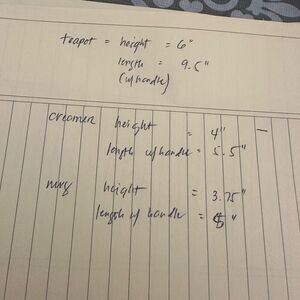 teapot = height = 6"
length = 9.5"
(w/handle)
creamer height = 4" —
length w/handle = 5.5"
mug height = 3.75"
length w/ handle = "